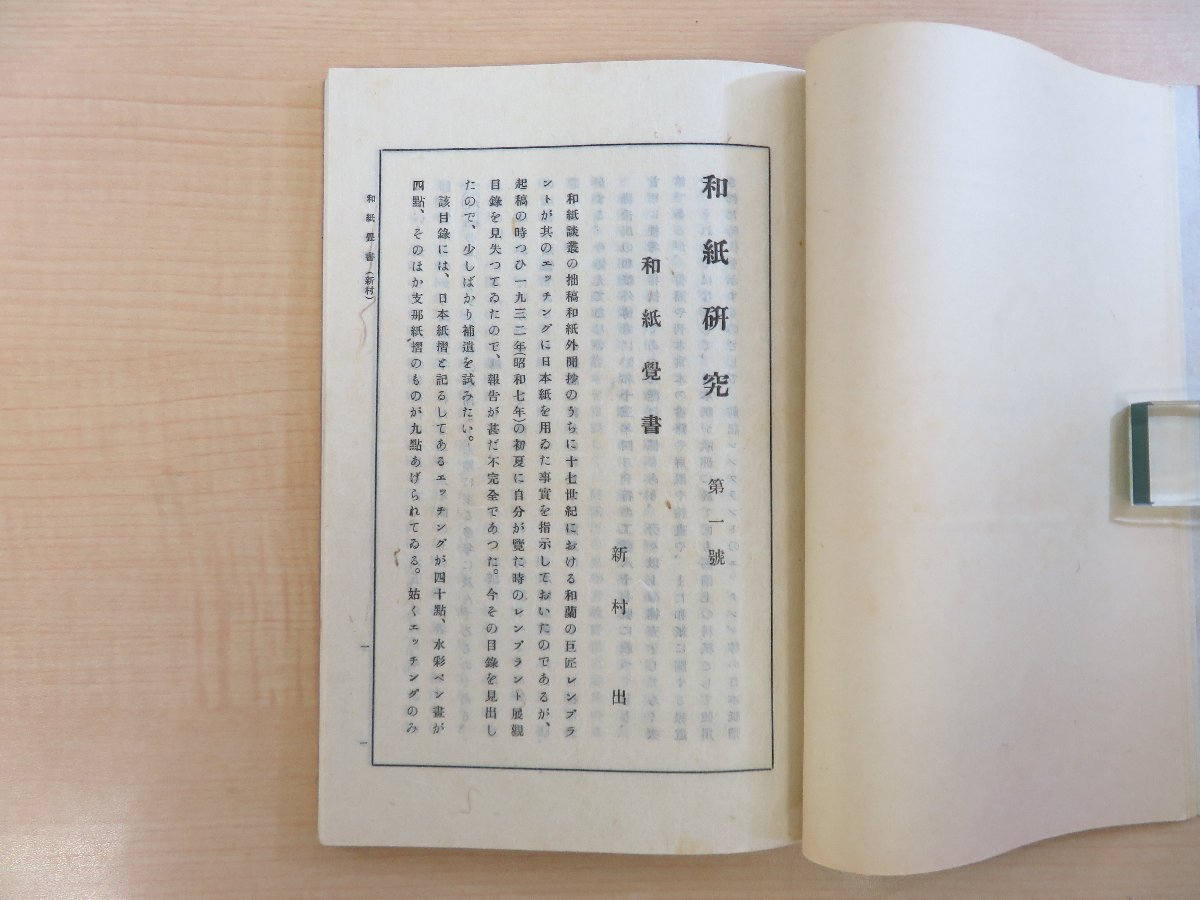 和紙研究 第一號
和紙覺書
新村出
和紙談叢の拙稿和紙外聞抄のうちに十七世紀における和蘭の巨匠レンブラ
ントが其のエッチングに日本紙を用ゐた事實を指示しておいたのであるが、
起稿の時つひ一九三二年(昭和七年)の初夏に自分が覽た時のレンブラント展觀
目錄を見失つてゐたので、報告が甚だ不完全であつた。今その目錄を見出し
たので、少しばかり補遺を試みたい。
該目錄には、日本紙摺と記るしてあるエッチングが四十點、水彩ペン畫が
四點、そのほか支那紙摺のものが九點あげられてゐる。姑くエッチングのみ
和紙覺書(新村)
一
一